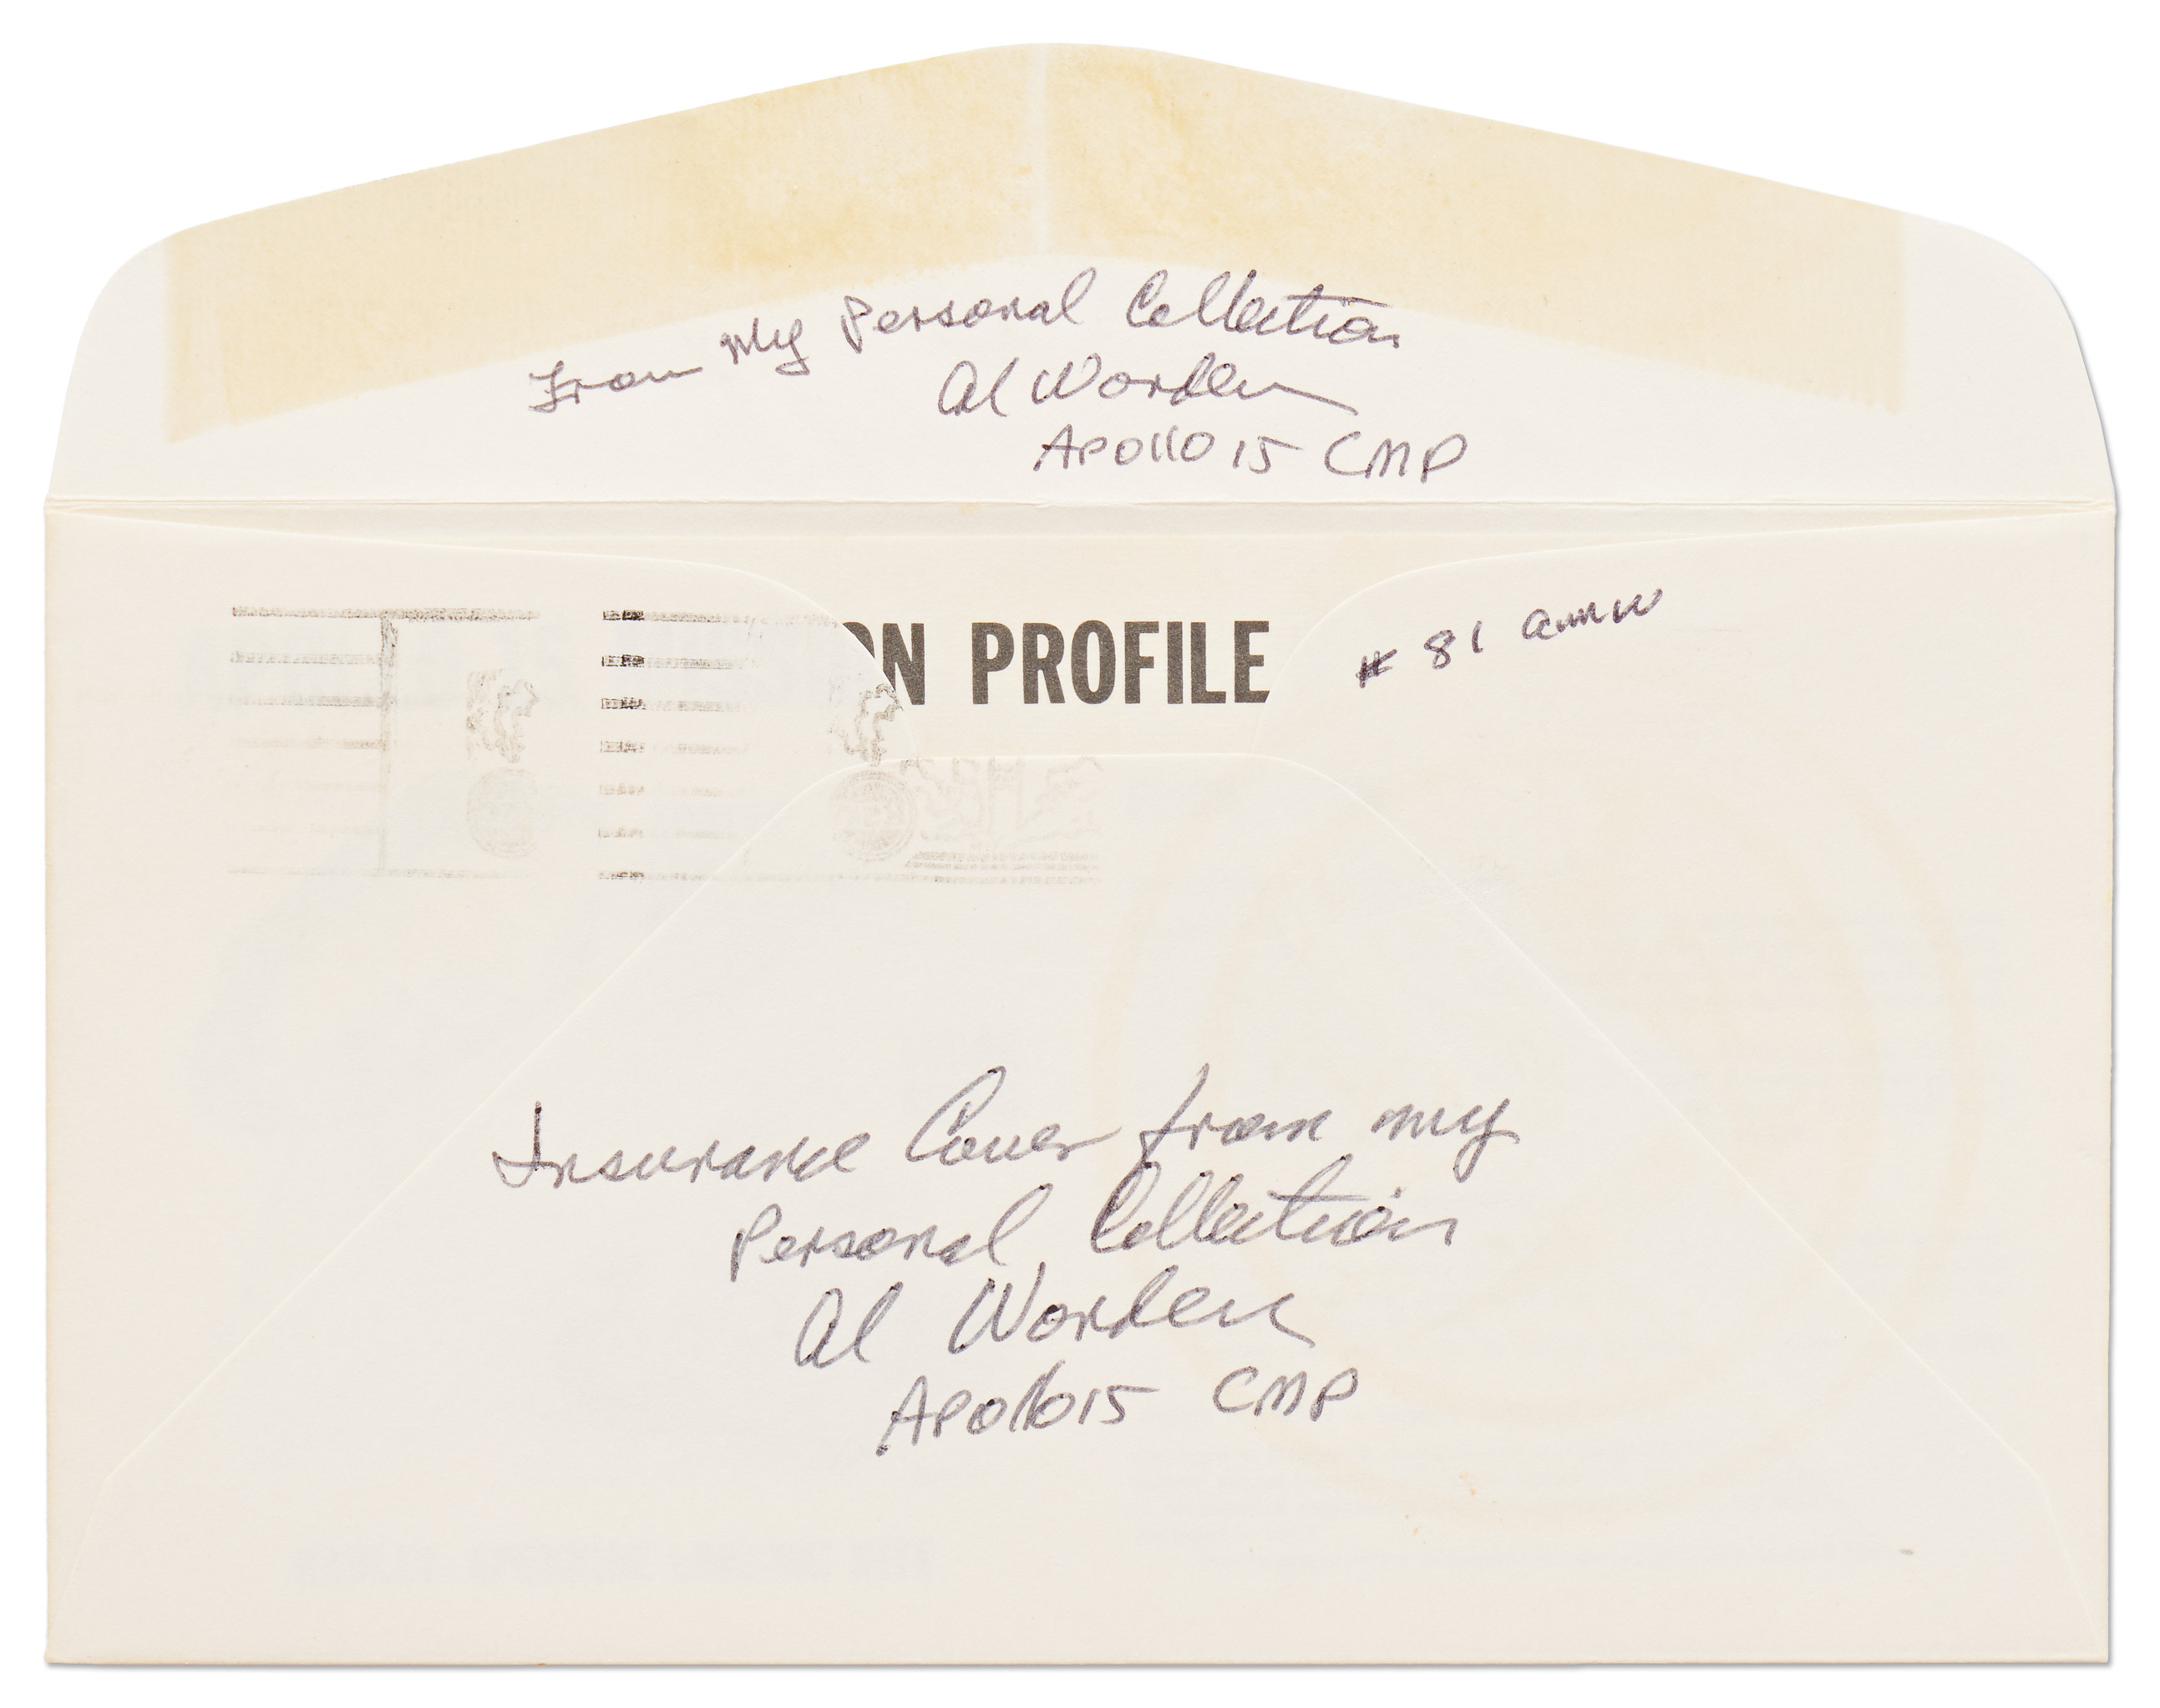 From My Personal Collection
Al Worden
Apollo 15 CMP
ON PROFILE
# 81 amw
Insurance Cover from my
Personal Collection
Al Worden
Apollo 15 CMP